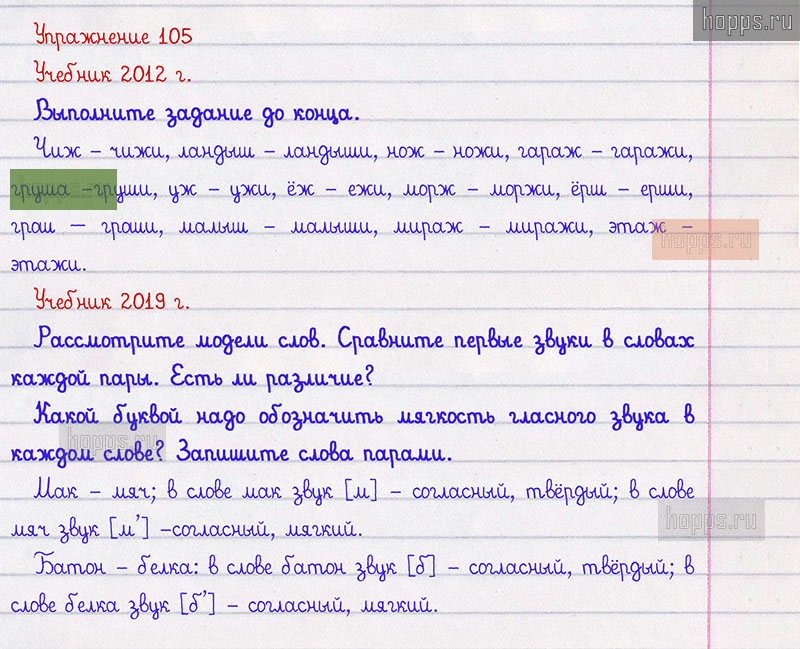 hopps.ru
Упражнение 105
Учебник 2012 г.
Выполните задание до конца.
Чиж – чижи, ландыш – ландыши, нож – ножи, гараж – гаражи,
груша –груши, уж – ужи, ёж – ежи, морж – моржи, ёрш – ерши,
грош — гроши, малыш – малыши, мираж – миражи, этаж –
hopps.ru
этажи.
Учебник 2019 г.
Рассмотрите модели слов. Сравните первые звуки в словах
каждой пары. Есть ли различие?
Какой буквой надо обозначить мягкость гласного звука в
hopps.ru
каждом слове? Запишите слова парами.
Мак – мяч; в слове мак звук [м] – согласный, твёрдый; в слове
hopps.ru
мяч звук [м’] –согласный, мягкий.
Батон – белка: в слове батон звук [б] – согласный, твёрдый; в
слове белка звук [б’] – согласный, мягкий.